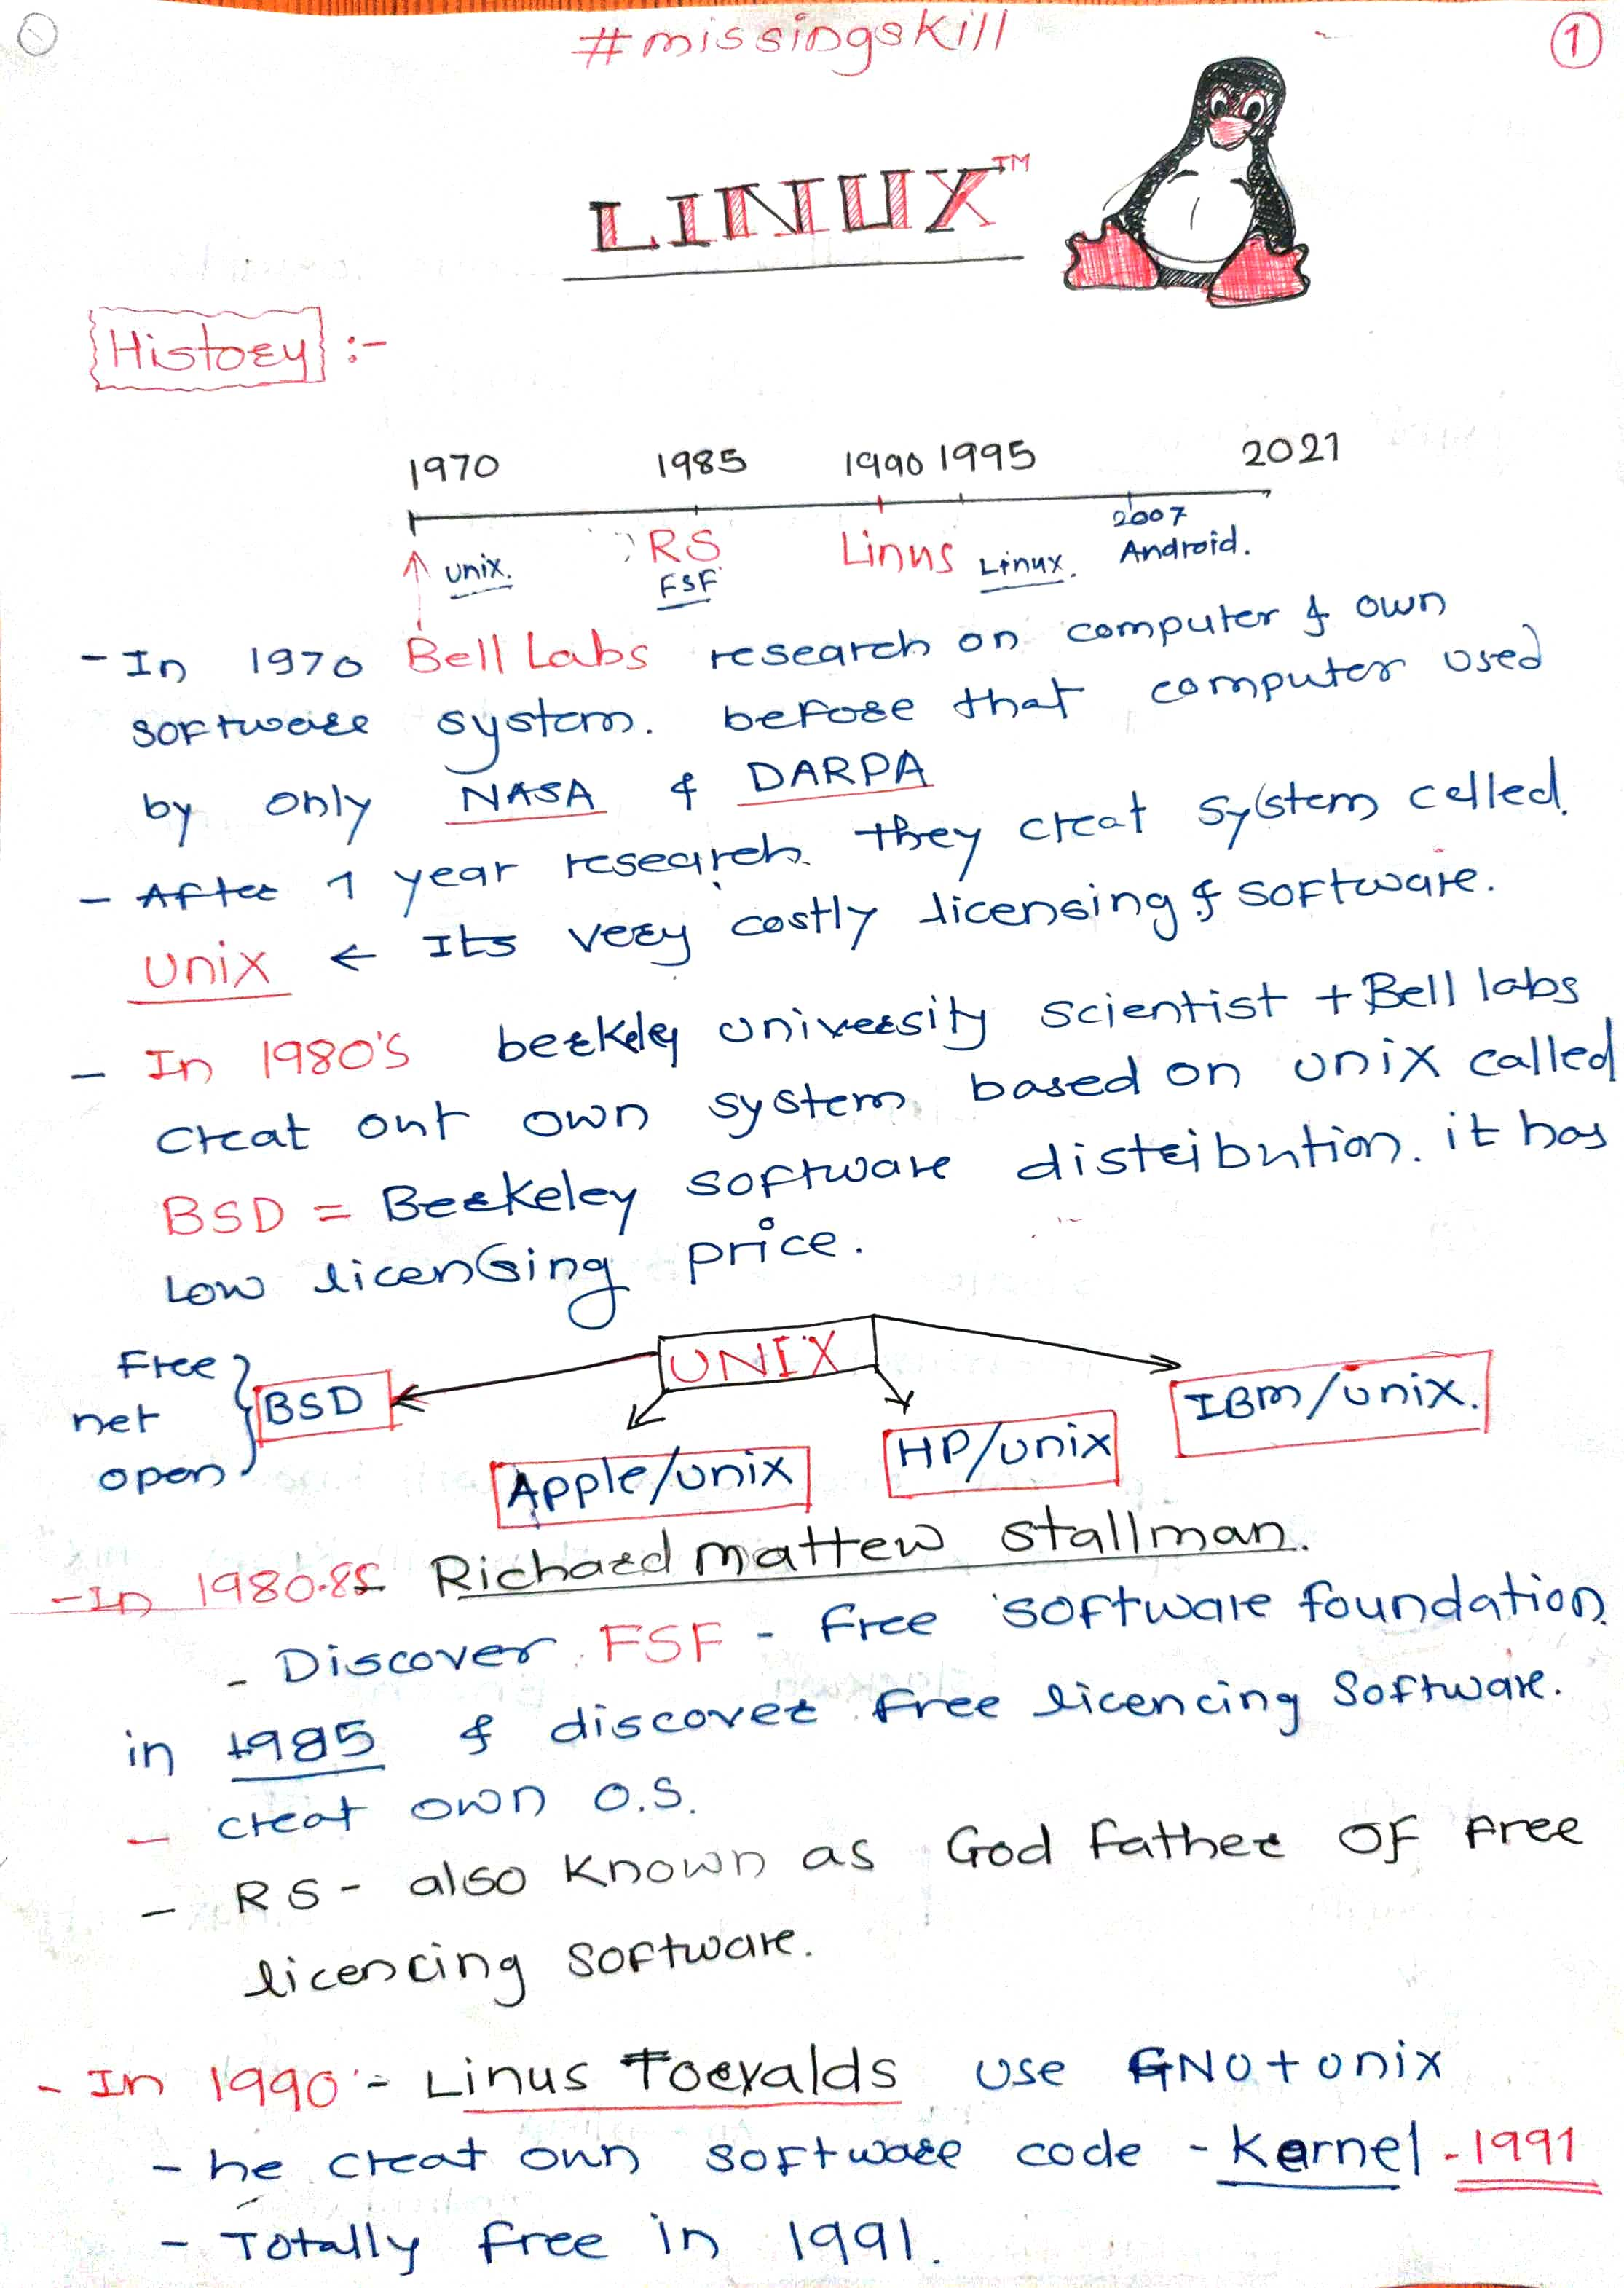 #missingskill
1
LINUX™
History :-
1970 1985 1990 1995 2021
2007
unix. RS Linus Linux. Android.
FSF
- In 1970 Bell Labs research on computer & own
software system. before that computer used
by only NASA & DARPA
- After 1 year research they creat system called.
Unix ← Its very costly licensing & software.
- In 1980's berkely university scientist + Bell labs
creat out own system based on unix called
BSD = Berkeley software distribution. it has
Low licensing price.
UNIX
Free
net
open
BSD
Apple/unix
HP/unix
IBM/unix.
- In 1980-85 Richard mattew stallman.
- Discover FSF - Free software foundation.
in 1985 & discover free licencing software.
- creat own O.S.
- RS - also known as God father of free
licencing software.
- In 1990 - Linus Torvalds use GNU + unix
- he creat own software code - Kernel - 1991
- Totally free in 1991.